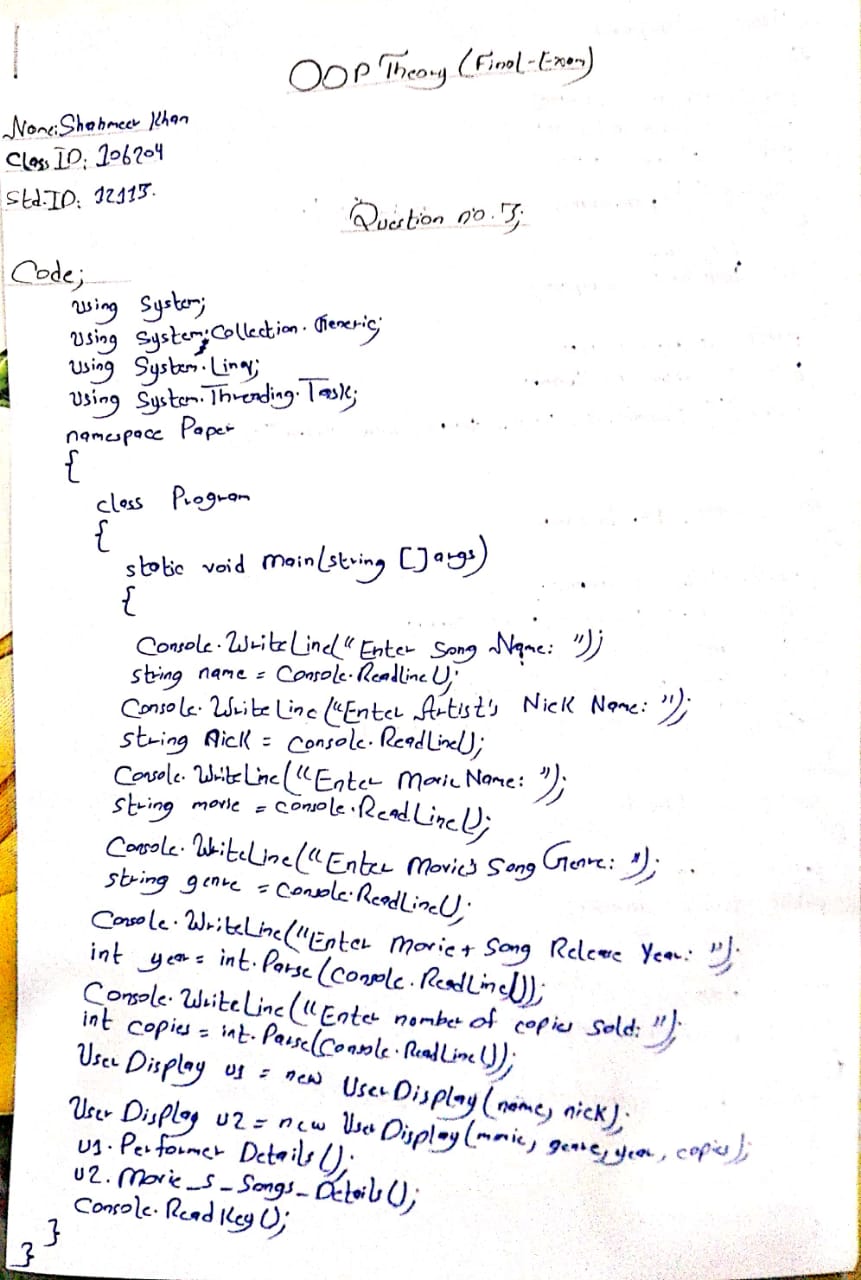 OOP Theory (Final-Exam)
Name: Shahmeer Khan
Class ID: 106204
Std.ID: 12115.
Question no. 3;
Code;
using System;
Using System.Collection.Generic;
Using System.Linq;
Using System.Threading.Task;
namespace Paper
{
class Program
{
static void main(string []args)
{
Console.WriteLine("Enter Song Name: ");
string name = Console.Readline();
Console.WriteLine("Enter Artist's Nick Name: ");
string Nick = Console.ReadLine();
Console.WriteLine("Enter Movie Name: ");
string movie = console.ReadLine();
Console.WriteLine("Enter Movie's Song Genre: ");
string genre = Console.ReadLine();
Console.WriteLine("Enter Movie + Song Release Year: ");
int year = int.Parse(Console.ReadLine());
Console.WriteLine("Enter nomber of copies sold: ");
int copies = int.Parse(Console.ReadLine());
User Display u1 = new UserDisplay(name, nick);
User Display u2 = new User Display(movie, genre, year, copies);
u1.Performer Details();
u2.Movie_s_Songs_Details();
Console.ReadKey();
}
}